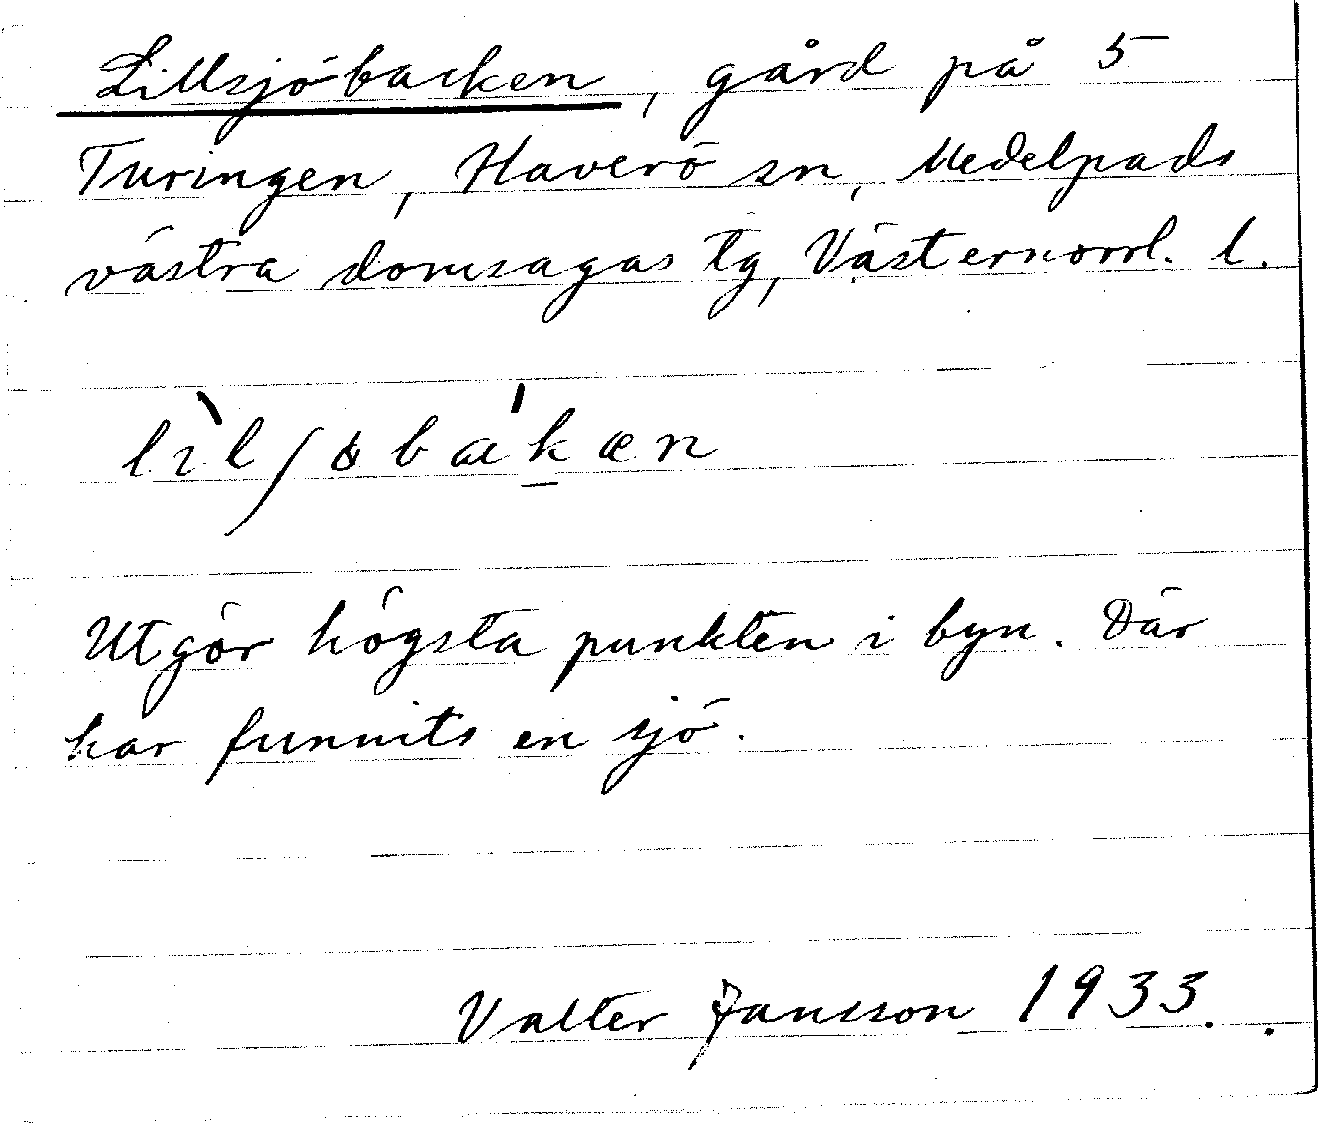 Lillsjöbacken, gård på 5
Turingen, Haverö sn, Medelpads
västra domsagas tg, Västernorrl. l.
lìlʃɵbáḵæn
Utgör högsta punkten i byn. Där
har funnits en sjö.
Valter Jansson 1933.